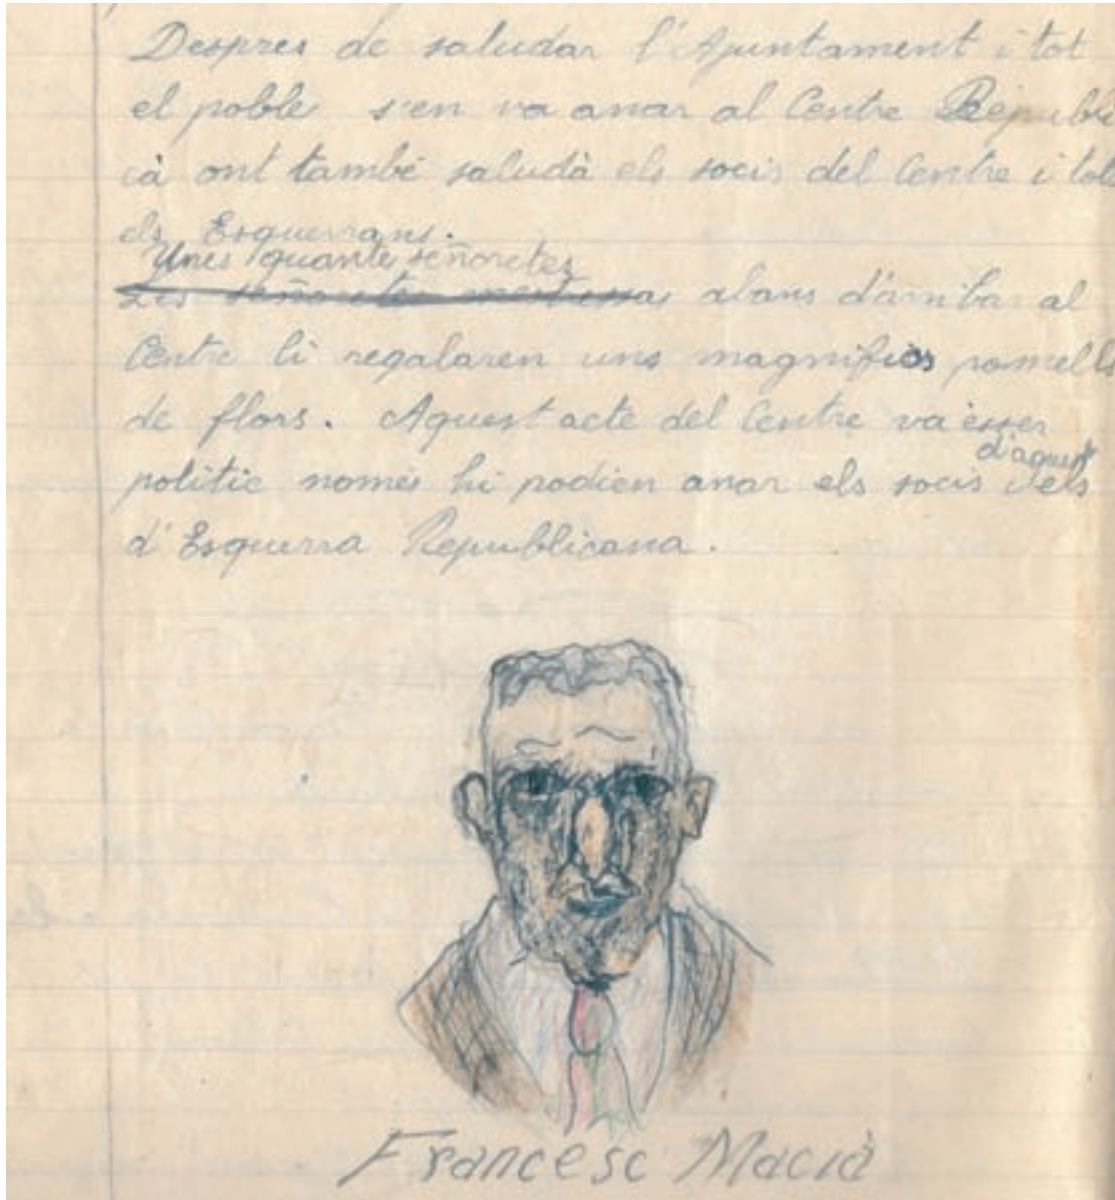 Despres de saludar l'Ajuntament i tot
el poble s'en va anar al Centre Republi
cà ont també saludà els socis del Centre i tots
els Esquerrans.
Unes quante señoretes
Les señoretes abans d'arribar al
Centre li regalaren uns magnifics pomells
de flors. Aquest acte del Centre va ésser
d'aquest
politic només hi podien anar els socis i els
d'Esquerra Republicana.
Francesc Macià